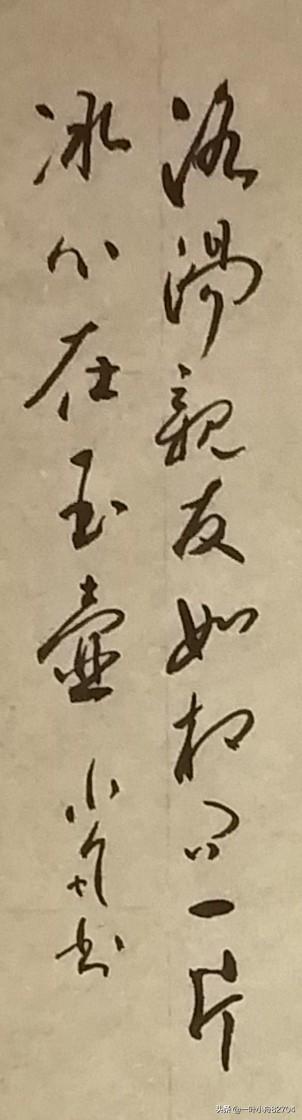 洛陽親友如相问一片
冰心在玉壺
小舟书
头条 @一叶小舟82704